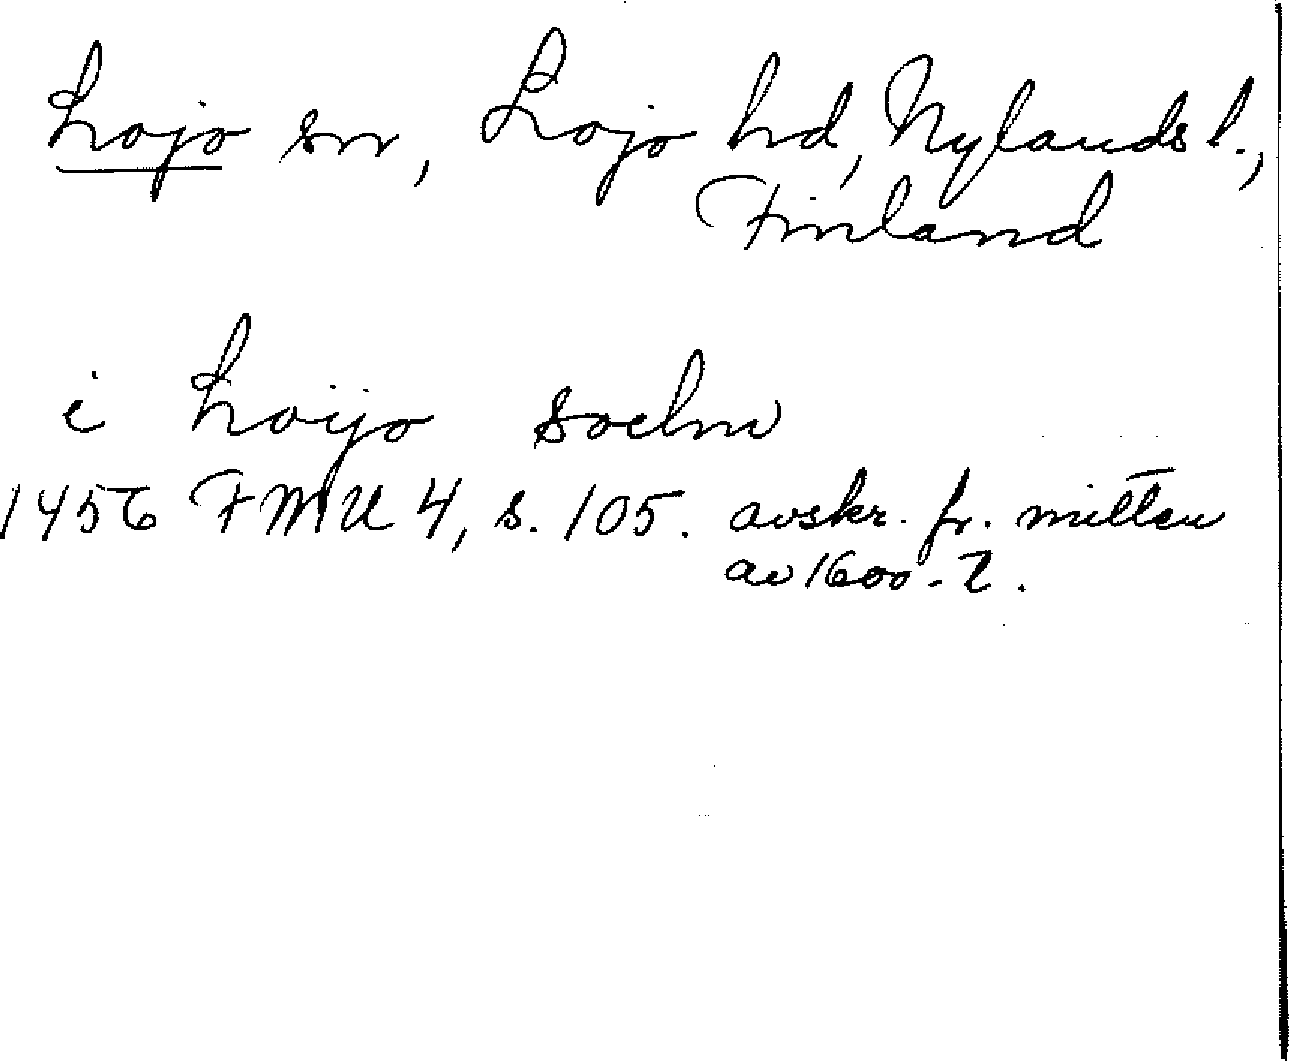 Lojo sn, Lojo hd, Nylands l.,
Finland
i Loijo sochn
1456 FMU 4, s. 105. avskr. fr. mitten
av 1600-t.